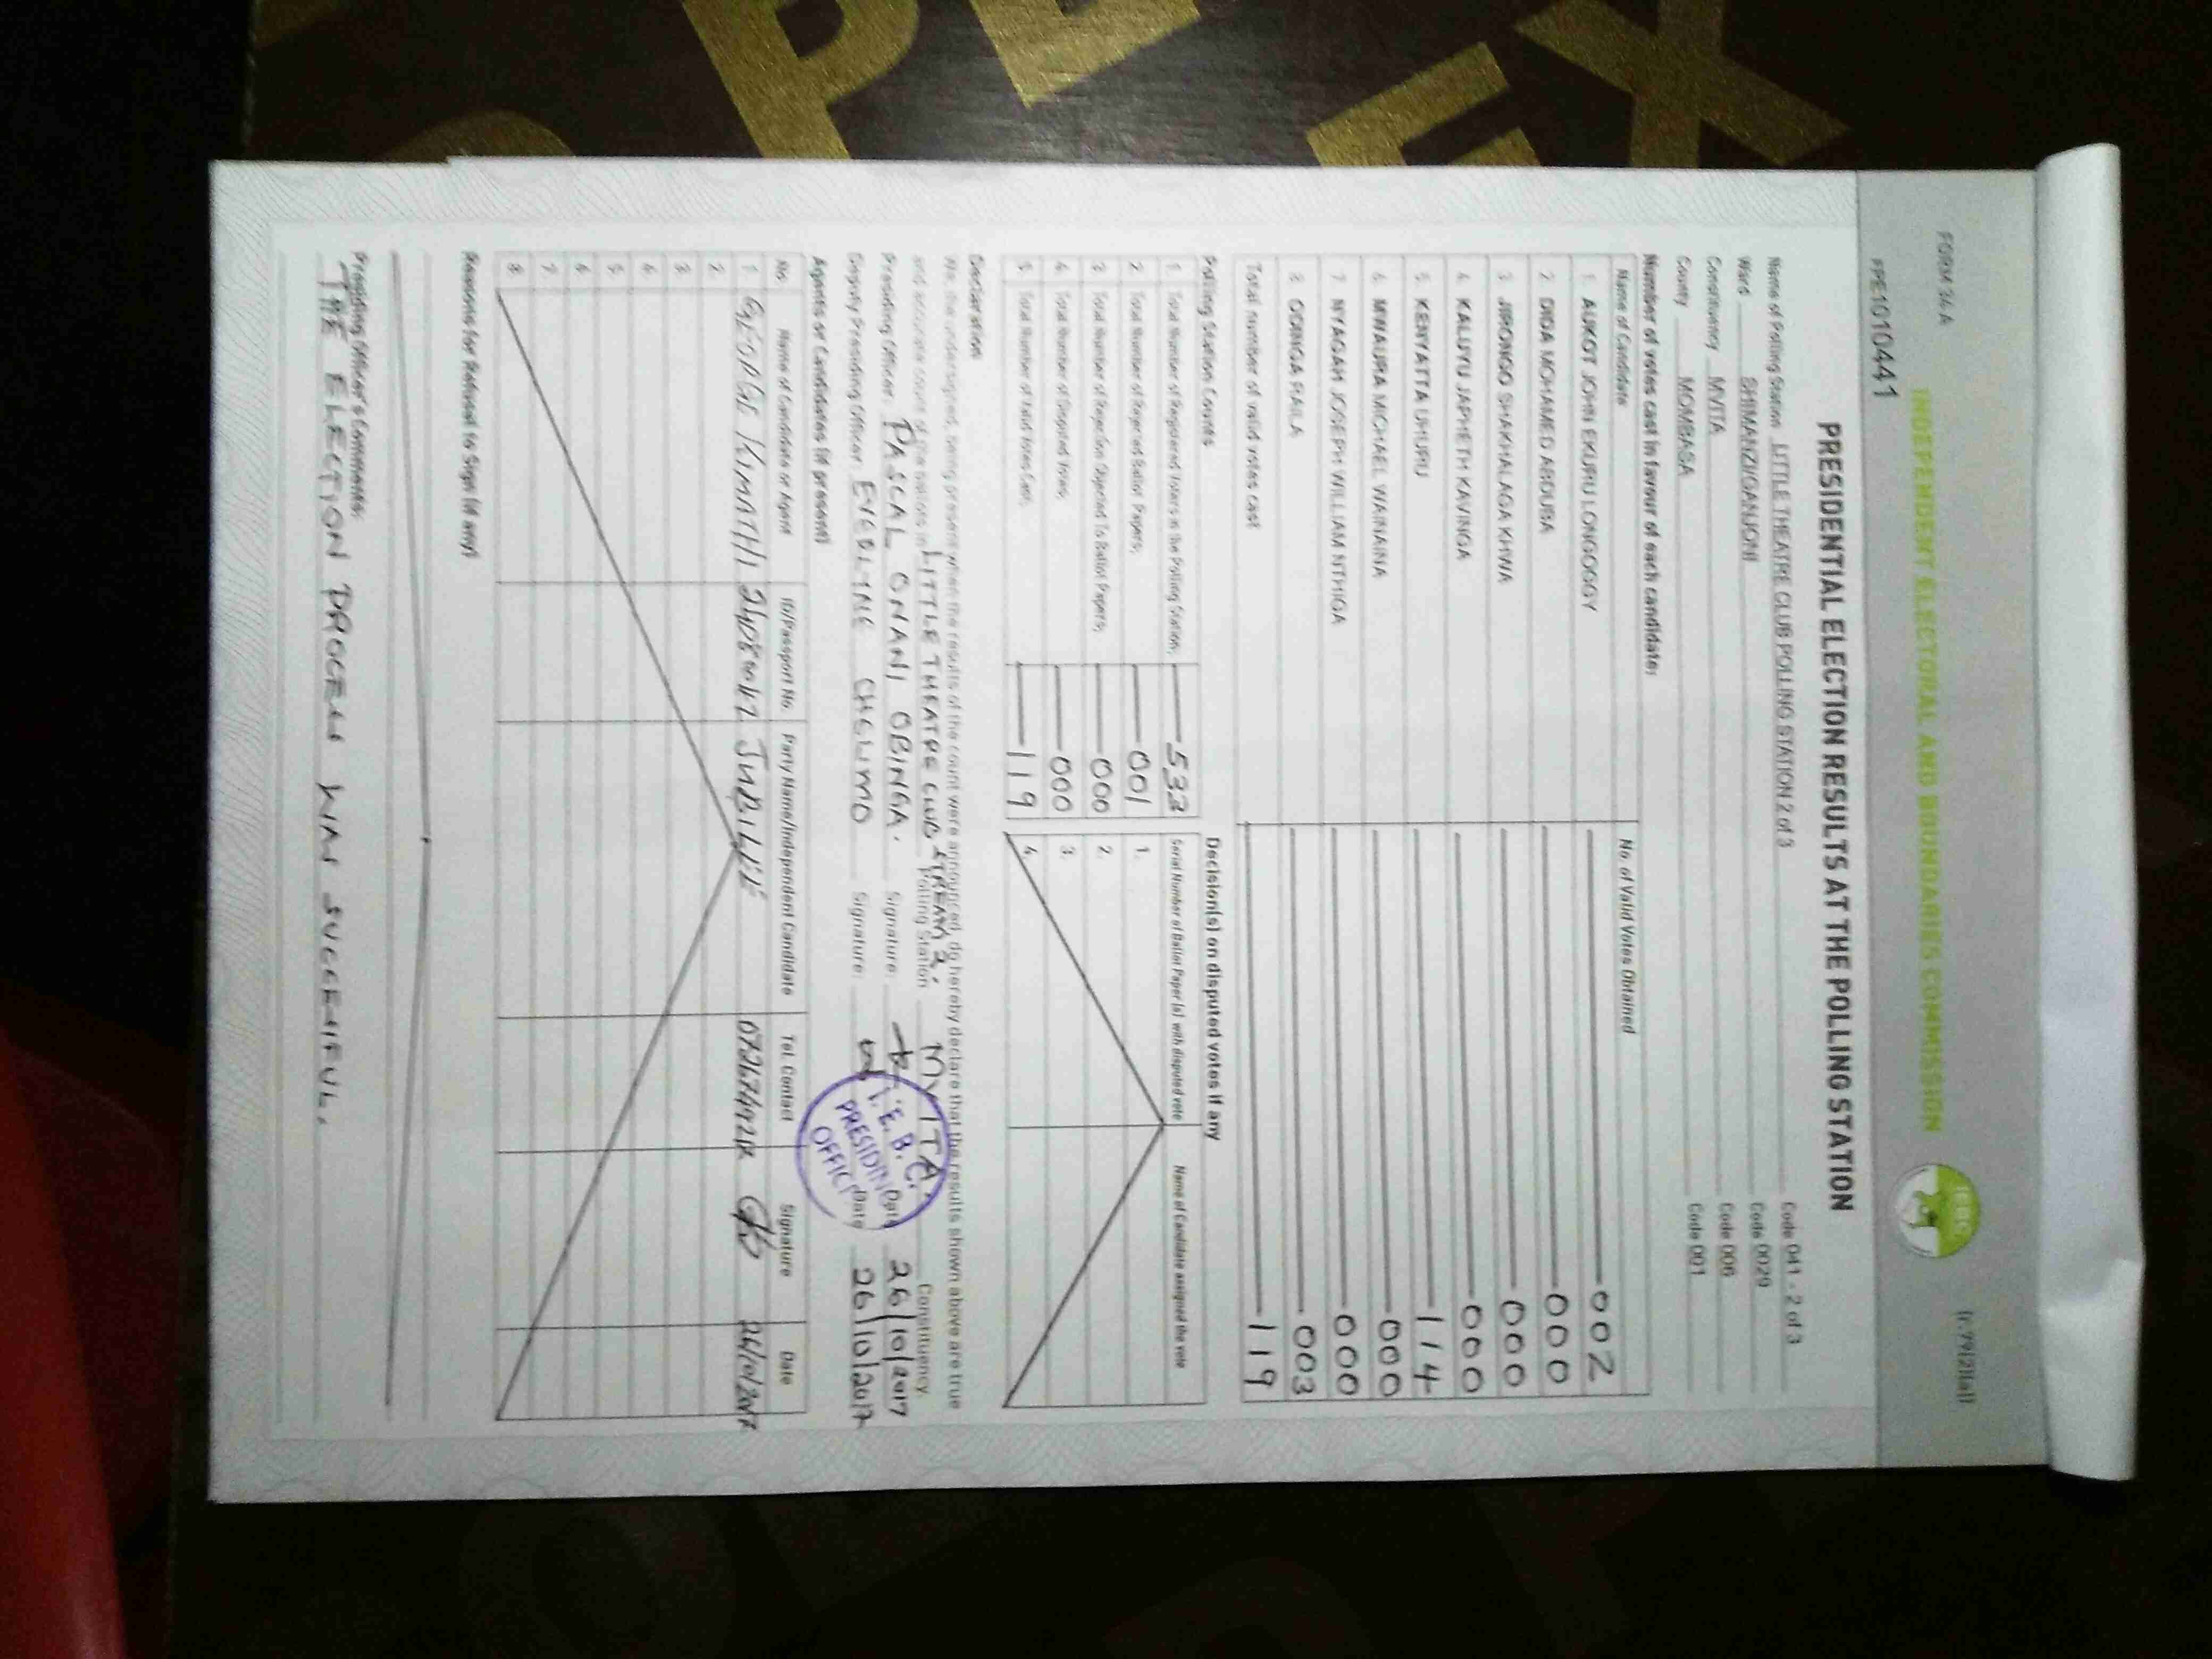 FORM 34 A
INDEPENDENT ELECTORAL AND BOUNDARIES COMMISSION
IEBC
(r.79(2)(a))
PPE1010441
PRESIDENTIAL ELECTION RESULTS AT THE POLLING STATION
Name of Polling Station LITTLE THEATRE CLUB POLLING STATION 2 of 3 Code 041 - 2 of 3
Ward SHIMANZI/GANJONI Code 0029
Constituency MVITA Code 006
County MOMBASA Code 001
Number of votes cast in favour of each candidate:
Name of Candidate No. of Valid Votes Obtained
1. AUKOT JOHN EKURU LONGOGGY 002
2. DIDA MOHAMED ABDUBA 000
3. JIRONGO SHAKHALAGA KHWA 000
4. KALUYU JAPHETH KAVINGA 000
5. KENYATTA UHURU 114
6. MWAURA MICHAEL WAINAINA 000
7. NYAGAH JOSEPH WILLIAM NTHIGA 000
8. ODINGA RAILA 003
Total number of valid votes cast 119
Polling Station Counts
1. Total Number of Registered Voters in the Polling Station: 533
2. Total Number of Rejected Ballot Papers: 001
3. Total Number of Rejection Objected To Ballot Papers: 000
4. Total Number of Disputed Votes: 000
5. Total Number of Valid Votes Cast: 119
Decision(s) on disputed votes if any
Serial Number of Ballot Paper (s) with disputed vote Name of Candidate assigned the vote
1.
2.
3.
4.
Declaration
We, the undersigned, being present when the results of the count were announced, do hereby declare that the results shown above are true
and accurate count of the ballots in LITTLE THEATRE CLUB STREAM 2. Polling Station MVITA. Constituency.
Presiding Officer: PASCAL ONANI OBINGA. Signature: Date 26/10/2017
Deputy Presiding Officer: EVERLYNE CHELIMO Signature: Date 26/10/2017
I.E.B.C.
PRESIDING
OFFICE
Agents or Candidates (if present)
No. Name of Candidate or Agent ID/Passport No. Party Name/Independent Candidate Tel. Contact Signature Date
1 GEORGE KIMATHI JUBILEE 26/10/2017
2
3
4
5
6
7
8
Reasons for Refusal to Sign (if any)
Presiding Officer's Comments:
THE ELECTION PROCESS WAS SUCCESSFUL.